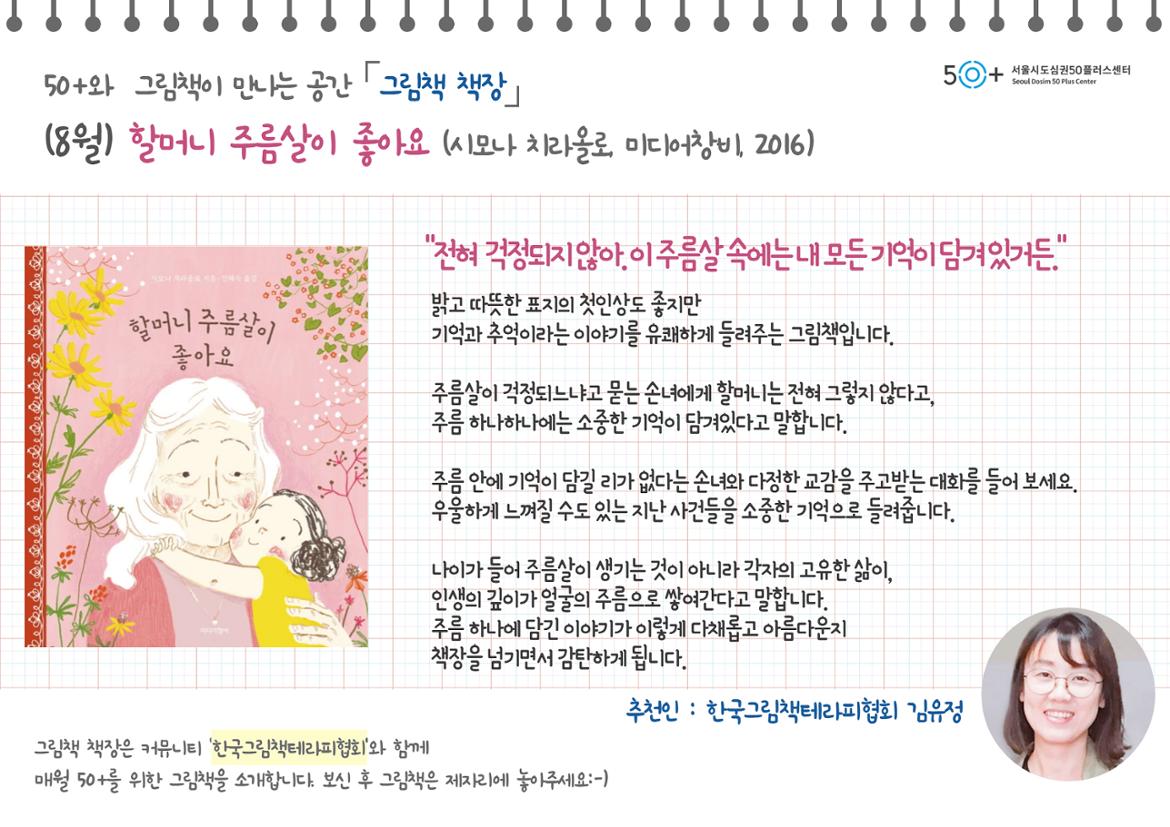 50+와 그림책이 만나는 공간 「그림책 책장」
50+ 서울시도심권50플러스센터
Seoul Dosim 50 Plus Center
(8월) 할머니 주름살이 좋아요 (시모나 치라올로, 미디어창비, 2016)
시모나 치라올로 지음·엄혜숙 옮김
할머니 주름살이
좋아요
미디어창비
"전혀 걱정되지 않아. 이 주름살 속에는 내 모든 기억이 담겨 있거든."
밝고 따뜻한 표지의 첫인상도 좋지만
기억과 추억이라는 이야기를 유쾌하게 들려주는 그림책입니다.
주름살이 걱정되느냐고 묻는 손녀에게 할머니는 전혀 그렇지 않다고,
주름 하나하나에는 소중한 기억이 담겨있다고 말합니다.
주름 안에 기억이 담길 리가 없다는 손녀와 다정한 교감을 주고받는 대화를 들어 보세요.
우울하게 느껴질 수도 있는 지난 사건들을 소중한 기억으로 들려줍니다.
나이가 들어 주름살이 생기는 것이 아니라 각자의 고유한 삶이,
인생의 깊이가 얼굴의 주름으로 쌓여간다고 말합니다.
주름 하나에 담긴 이야기가 이렇게 다채롭고 아름다운지
책장을 넘기면서 감탄하게 됩니다.
추천인 : 한국그림책테라피협회 김유정
그림책 책장은 커뮤니티 '한국그림책테라피협회'와 함께
매월 50+를 위한 그림책을 소개합니다. 보신 후 그림책은 제자리에 놓아주세요:-)